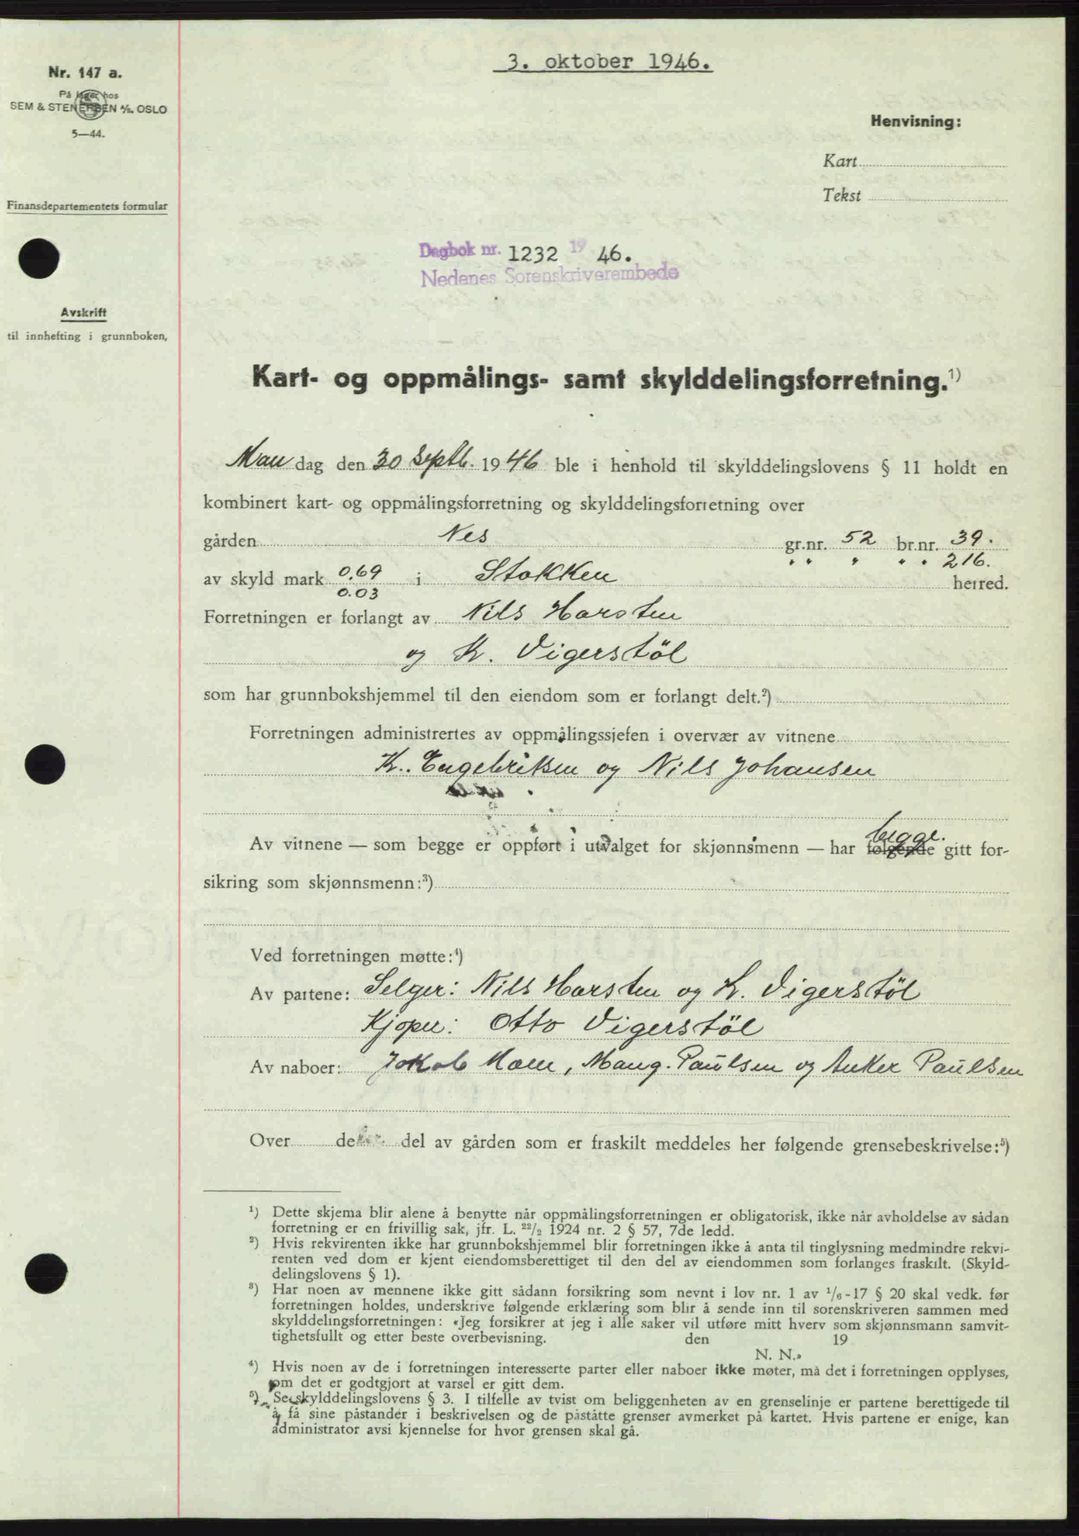 3. oktober 1946.
Nr. 147 a.
På lager hos
SEM & STENERSEN A/S. OSLO
5—44.
Henvisning:
Kart
Tekst
Finansdepartementets formular
Dagbok nr. 1232 1946.
Nedenes Sorenskriverembede
Avskrift
til innhefting i grunnboken,
Kart- og oppmålings- samt skylddelingsforretning.¹)
Mandag den 30 Septb. 1946 ble i henhold til skylddelingslovens § 11 holdt en
kombinert kart- og oppmålingsforretning og skylddelingsforretning over
gården Nes gr.nr. 52 br.nr. 39.
" " " " " 216.
av skyld mark 0.69 i Stokken herred.
0.03
Forretningen er forlangt av Nils Harsten
og K. Vigerstöl
som har grunnbokshjemmel til den eiendom som er forlangt delt.²)
Forretningen administrertes av oppmålingssjefen i overvær av vitnene
K. Engebriksen og Nils Johansen
begge.
Av vitnene — som begge er oppført i utvalget for skjønnsmenn — har følgende gitt for-
sikring som skjønnsmenn:³)
Ved forretningen møtte:⁴)
Av partene: Selger: Nils Harsten og K. Vigerstöl
Kjøper: Otto Vigerstöl
Av naboer: Jakob Moen, Maug. Paulsen og Anker Paulsen
Over de del av gården som er fraskilt meddeles her følgende grensebeskrivelse:⁵)
¹) Dette skjema blir alene å benytte når oppmålingsforretningen er obligatorisk, ikke når avholdelse av sådan
forretning er en frivillig sak, jfr. L. ²²/₂ 1924 nr. 2 § 57, 7de ledd.
²) Hvis rekvirenten ikke har grunnbokshjemmel blir forretningen ikke å anta til tinglysning medmindre rekvi-
renten ved dom er kjent eiendomsberettiget til den del av eiendommen som forlanges fraskilt. (Skyld-
delingslovens § 1).
³) Har noen av mennene ikke gitt sådann forsikring som nevnt i lov nr. 1 av ¹/₆-17 § 20 skal vedk. før
forretningen holdes, underskrive følgende erklæring som blir å sende inn til sorenskriveren sammen med
skylddelingsforretningen: «Jeg forsikrer at jeg i alle saker vil utføre mitt hverv som skjønnsmann samvit-
tighetsfullt og etter beste overbevisning. den 19
N. N.»
⁴) Hvis noen av de i forretningen interesserte parter eller naboer ikke møter, må det i forretningen opplyses,
om det er godtgjort at varsel er gitt dem.
⁵) Se skylddelingslovens § 3. I tilfelle av tvist om beliggenheten av en grenselinje er partene berettigede til
å få sine påstander i beskrivelsen og de påståtte grenser avmerket på kartet. Hvis partene er enige, kan
administrator avsi kjennelse for hvor grensen skal gå.